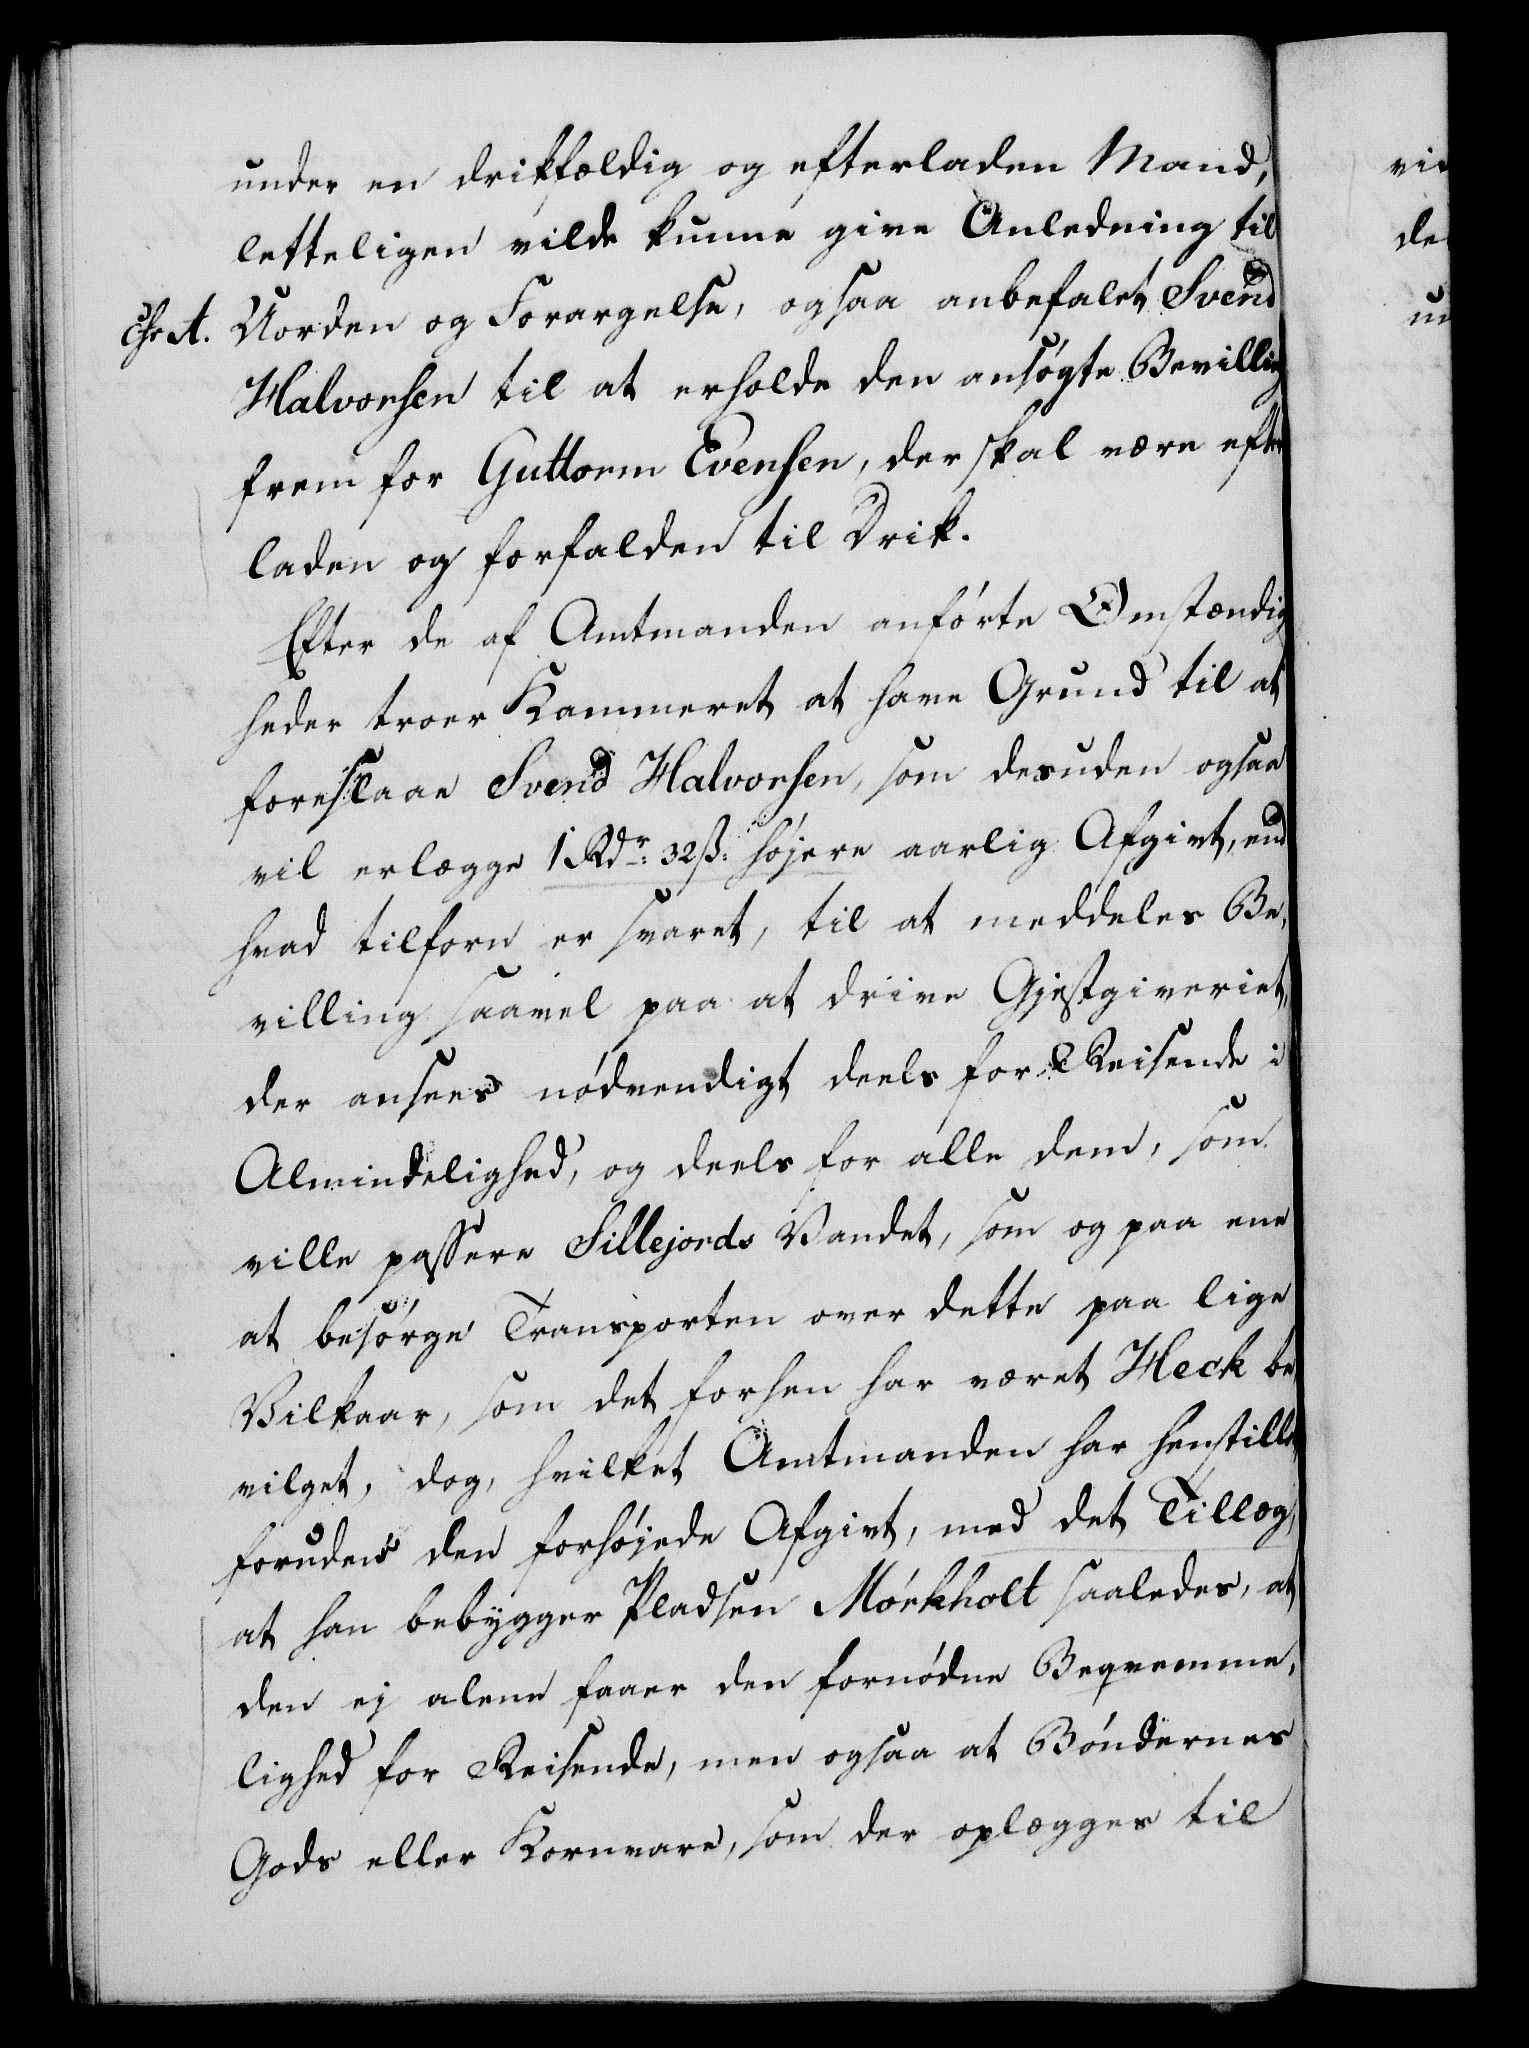 under en drikfældig og efterladen Mand,
letteligen vilde kunne give Anledning til
Uorden og Forargelse, ogsaa anbefalet Svend
Halvorsen til at erholde den ansøgte Bevilling
frem for Guttorm Evensen, der skal være efter
laden og forfalden til Drik.
Efter de af Amtmanden anførte Omstændig
heder troer Kammeret at have Grund til at
foreslaae Svend Halvorsen, som desuden ogsaa
vil erlægge 1 Rdr: 32 ß: højere aarlig Afgivt, end
hvad tilforn er svaret, til at meddeles Be,
villing saavel paa at drive Gjestgiveriet,
der ansees nødvendigt deels for Reisende i
Almindelighed, og deels for alle dem, som
ville passere Sillejords Vandet, som og paa ene
at besørge Transporten over dette paa lige
Vilkaar, som det forhen har været Heck be
vilget, dog, hvilket Amtmanden har henstillet,
foruden den forhøjede Afgivt, med det Tillæg,
at han bebygger Pladsen Mørkholt saaledes, at
den ej alene faaer den fornødne Beqvemme,
lighed for Reisende, men ogsaa at Bøndernes
Gods eller Kornvare, som der oplægges til